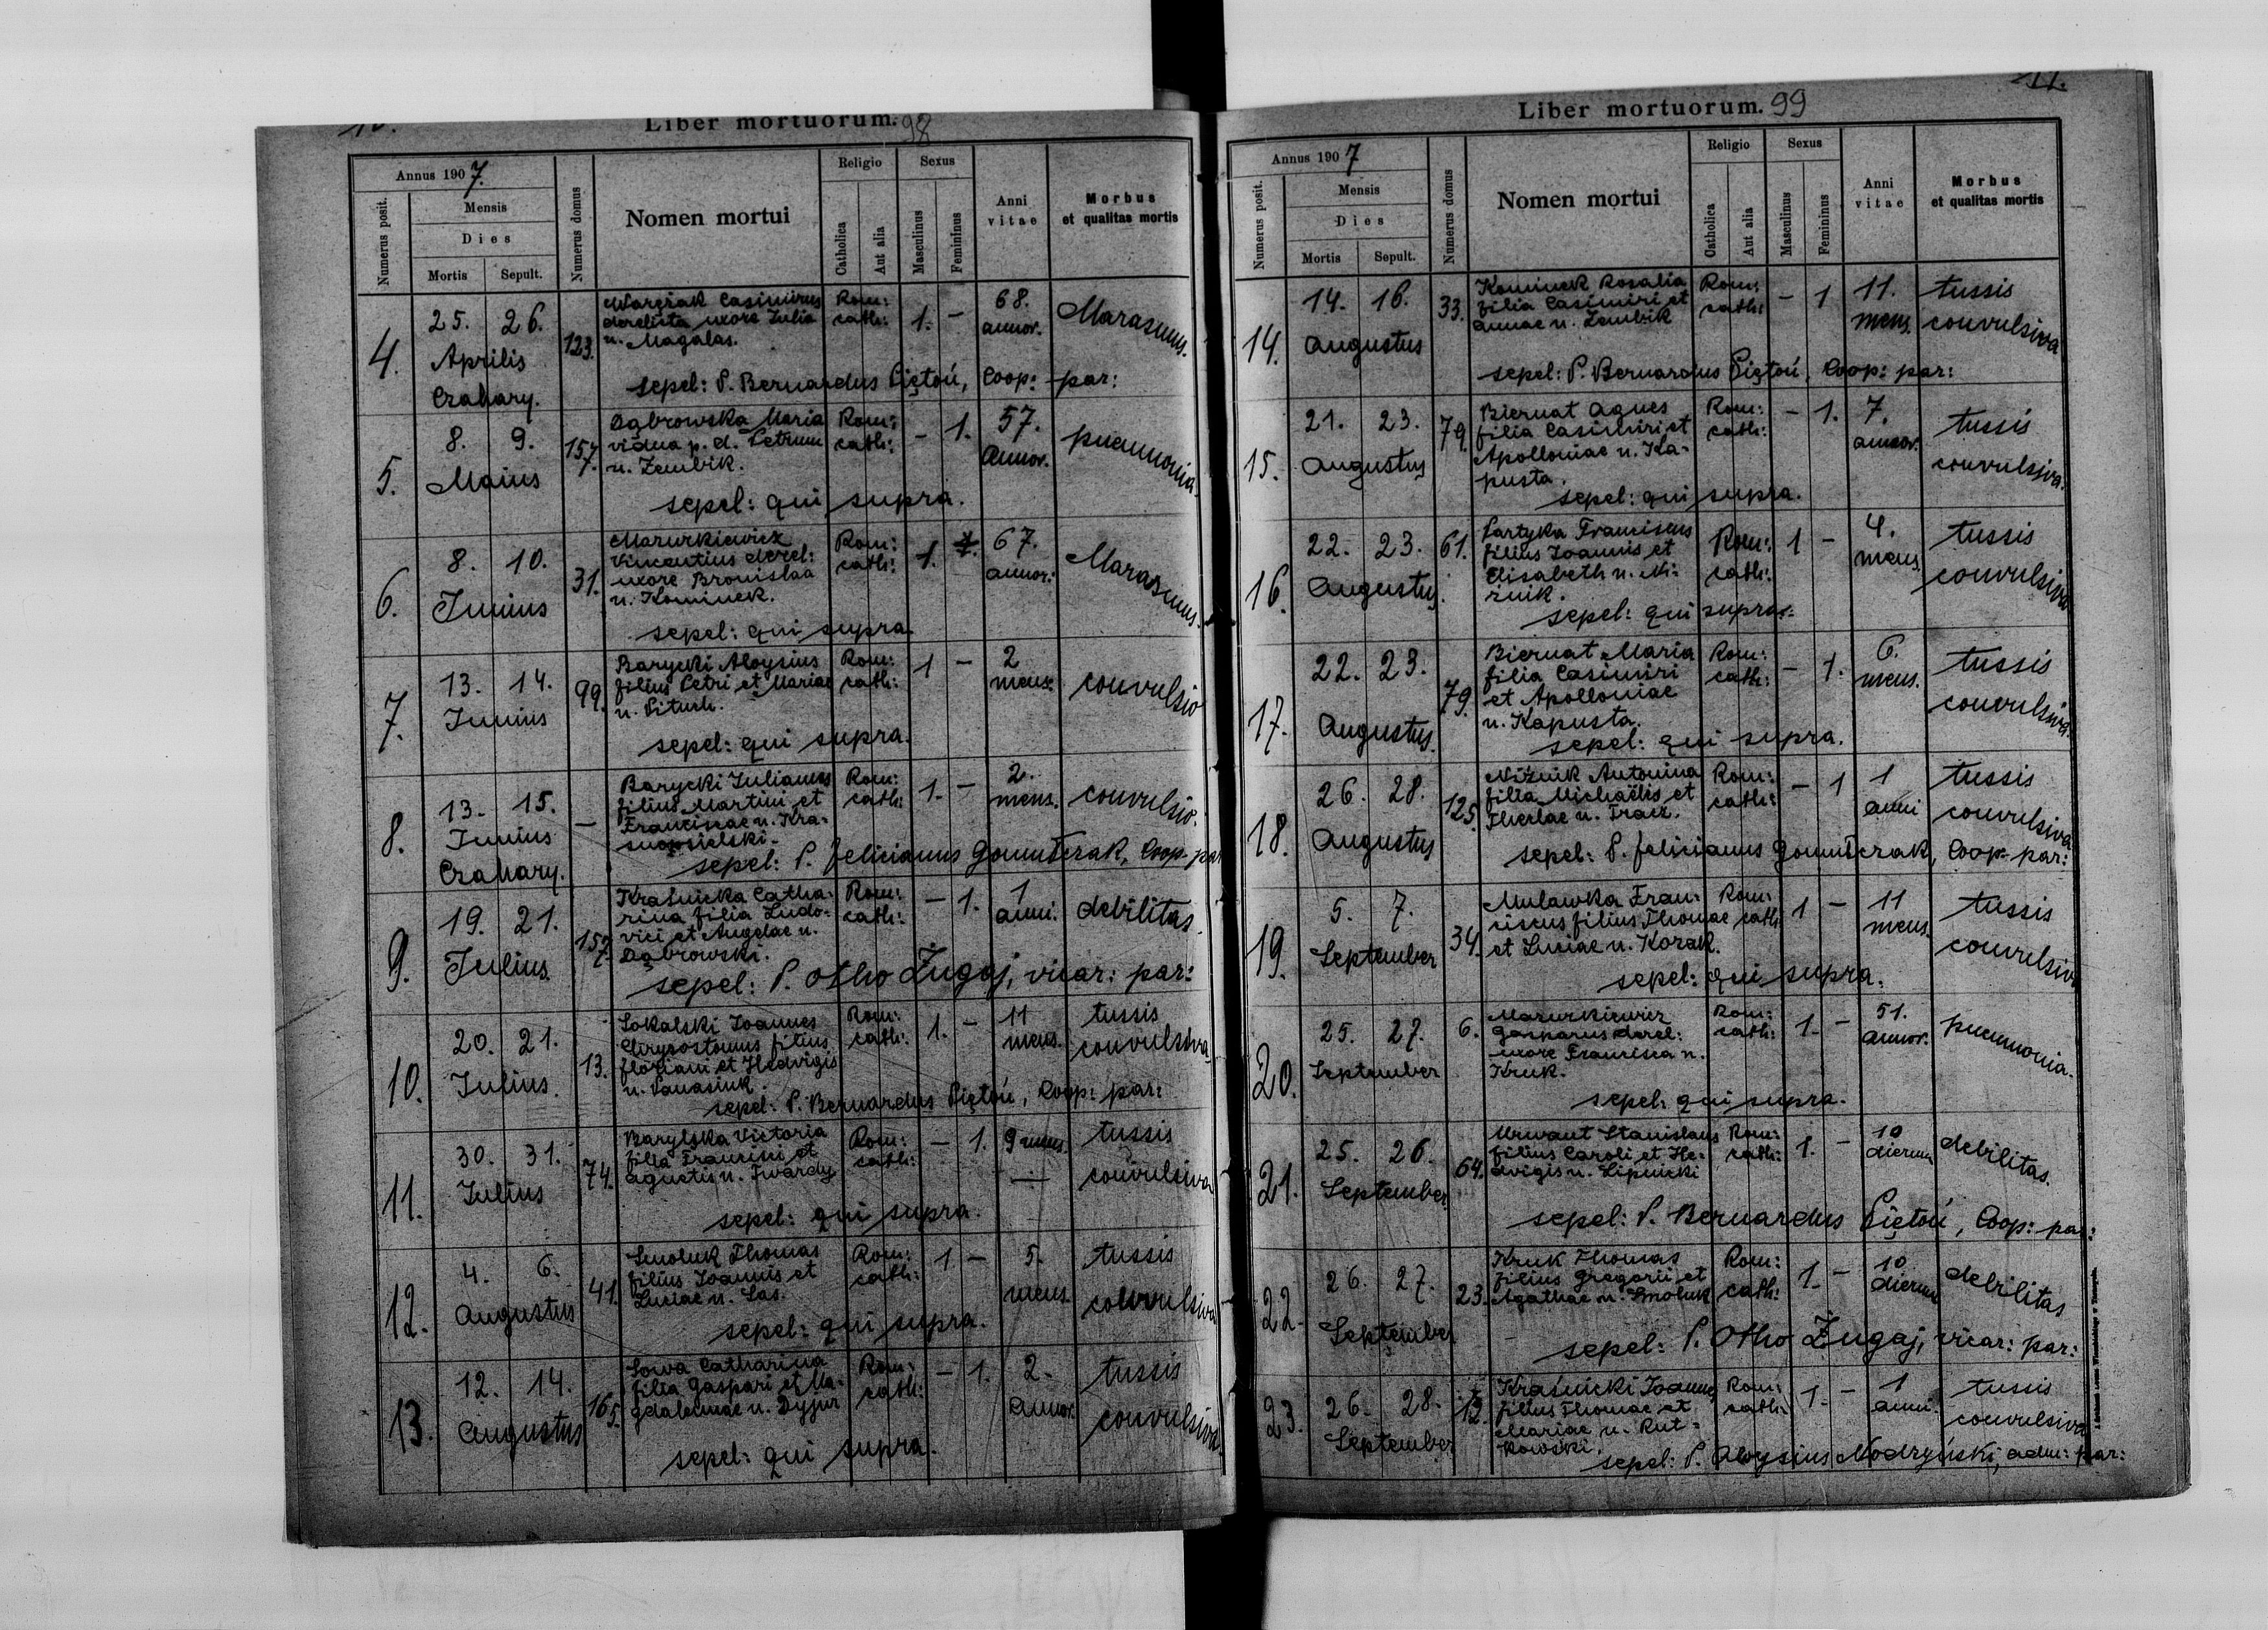 10.
Liber mortuorum. 98
Annus 1907.
Numerus posit.
Mensis
Dies
Mortis
Sepult.
Numerus domus
Nomen mortui
Religio
Catholica
Aut alia
Sexus
Masculinus
Femininus
Anni vitae
Morbus et qualitas mortis
4.
25. 26.
Aprilis
Czahary.
123.
Casimirus
derelicta uxore Julia
n. Magalas.
Rom: cath:
1. –
68. annor.
Marasmus.
sepel: P. Bernardus Piętoń, Coop: par:
5.
8. 9.
Maius
157.
Dąbrowska Maria
vidua p. d. Petrum
n. Zembik.
Rom: cath:
– 1.
57. annor.
pneumonia.
sepel: qui supra.
6.
8. 10.
Junius
31.
Mazurkiewicz
Vincentius derel:
uxore Bronislaa
n. Kominek.
Rom: cath:
1.
67. annor:
Marasmus.
sepel: qui supra
7.
13. 14.
Junius
99.
Barycki Aloysius
filius Petri et Mariae
n. Pituch.
Rom: cath:
1 –
2 mens.
convulsio
sepel: qui supra.
8.
13. 15.
Junius
Czahary.
–
Barycki Julianus
filius Martini et
Franciscae n. Kra-
snopolski.
Rom: cath:
1. –
2. mens.
convulsio.
sepel: P. Felicianus Coop- par
9.
19. 21.
Julius.
157.
Kraśnicka Catha-
rina filia Ludo-
vici et Angelae n.
Dąbrowski.
Rom: cath:
– 1.
1 anni.
debilitas.
sepel: P. Otho Żugaj, vicar: par:
10.
20. 21.
Julius.
13.
Sokalski Joannes
Chrysostomus filius
Floriani et Hedvigis
n. Panasiuk.
Rom: cath:
1. –
11 mens.
tussis convulsiva
sepel: P. Bernardus Piętoń, Coop: par:
11.
30. 31.
Julius
74.
Barylska Victoria
filia Francisci et
Agnetis n. Twardy
Rom: cath:
– 1.
9 mens.
—
tussis convulsiva
sepel: qui supra.
12.
4. 6.
Augustus
41.
Smoluk Thomas
filius Joannis et
Luciae n. Sas.
Rom: cath:
1 –
5. mens.
tussis convulsiva
sepel: qui supra.
13.
12. 14.
Augustus
165.
Sowa Catharina
filia Gaspari et Ma-
gdalenae n. Dyjur
Rom: cath:
– 1.
2. annor.
tussis convulsiva.
sepel: qui supra.
11.
Liber mortuorum. 99
Annus 1907
Numerus posit.
Mensis
Dies
Mortis
Sepult.
Numerus domus
Nomen mortui
Religio
Catholica
Aut alia
Sexus
Masculinus
Femininus
Anni vitae
Morbus et qualitas mortis
14.
14. 16.
Augustus
33.
Kominek Rosalia
filia Casimiri et
Annae n. Zembik
Rom: cath:
– 1
11. mens.
tussis convulsiva
sepel: P. Bernardus Piętoń, Coop: par:
15.
21. 23.
Augustus
79.
Biernat Agnes
filia Casimiri et
Apolloniae n. Ka-
pusta.
Rom: cath:
– 1.
7. annor.
tussis convulsiva.
sepel: qui supra.
16.
22. 23.
Augustus.
61.
Partyka Franciscus
filius Joannis et
Elisabeth n. Ni-
żnik.
Rom: cath:
1 –
4. mens.
tussis convulsiva
sepel: qui supra.
17.
22. 23.
Augustus.
79.
Biernat Maria
filia Casimiri
et Apolloniae
n. Kapusta.
Rom: cath:
– 1.
6. mens.
tussis convulsiva.
sepel: qui supra.
18.
26. 28.
Augustus
125.
Niżnik Antonina
filia Michaëlis et
Theclae n. Tracz.
Rom: cath:
– 1
1 anni
tussis convulsiva
sepel: P. Felicianus Coop- par:
19.
5. 7.
September
34.
Mulawka Fran-
ciscus filius Thomae
et Luciae n. Kozak.
Rom: cath:
1 –
11 mens.
tussis convulsiv
sepel: qui supra.
20.
25. 27.
September
6.
Mazurkiewicz
Gasparus derel:
uxore Francisca n.
Kruk.
Rom: cath:
1. –
51. annor.
pneumonia.
sepel: qui supra.
21.
25. 26.
September
64.
Urwant Stanislaus
filius Caroli et He-
dvigis n. Lipnicki
Rom: cath:
1. –
10 dierum
debilitas.
sepel: P. Bernardus Piętoń, Coop: par:
22.
26. 27.
September
23.
Kruk Thomas
filius Gregorii et
Agathae n. Smoluk
Rom: cath:
1. –
10 dierum
debilitas
sepel: P. Otho Żugaj, vicar: par:
23.
26. 28.
September
Kraśnicki Joannes
filius Thomae et
Mariae n. Rut-
kowski.
Rom: cath:
1. –
1 anni.
tussis convulsiva
sepel: P. Aloysius Modrzyński, adm: par: